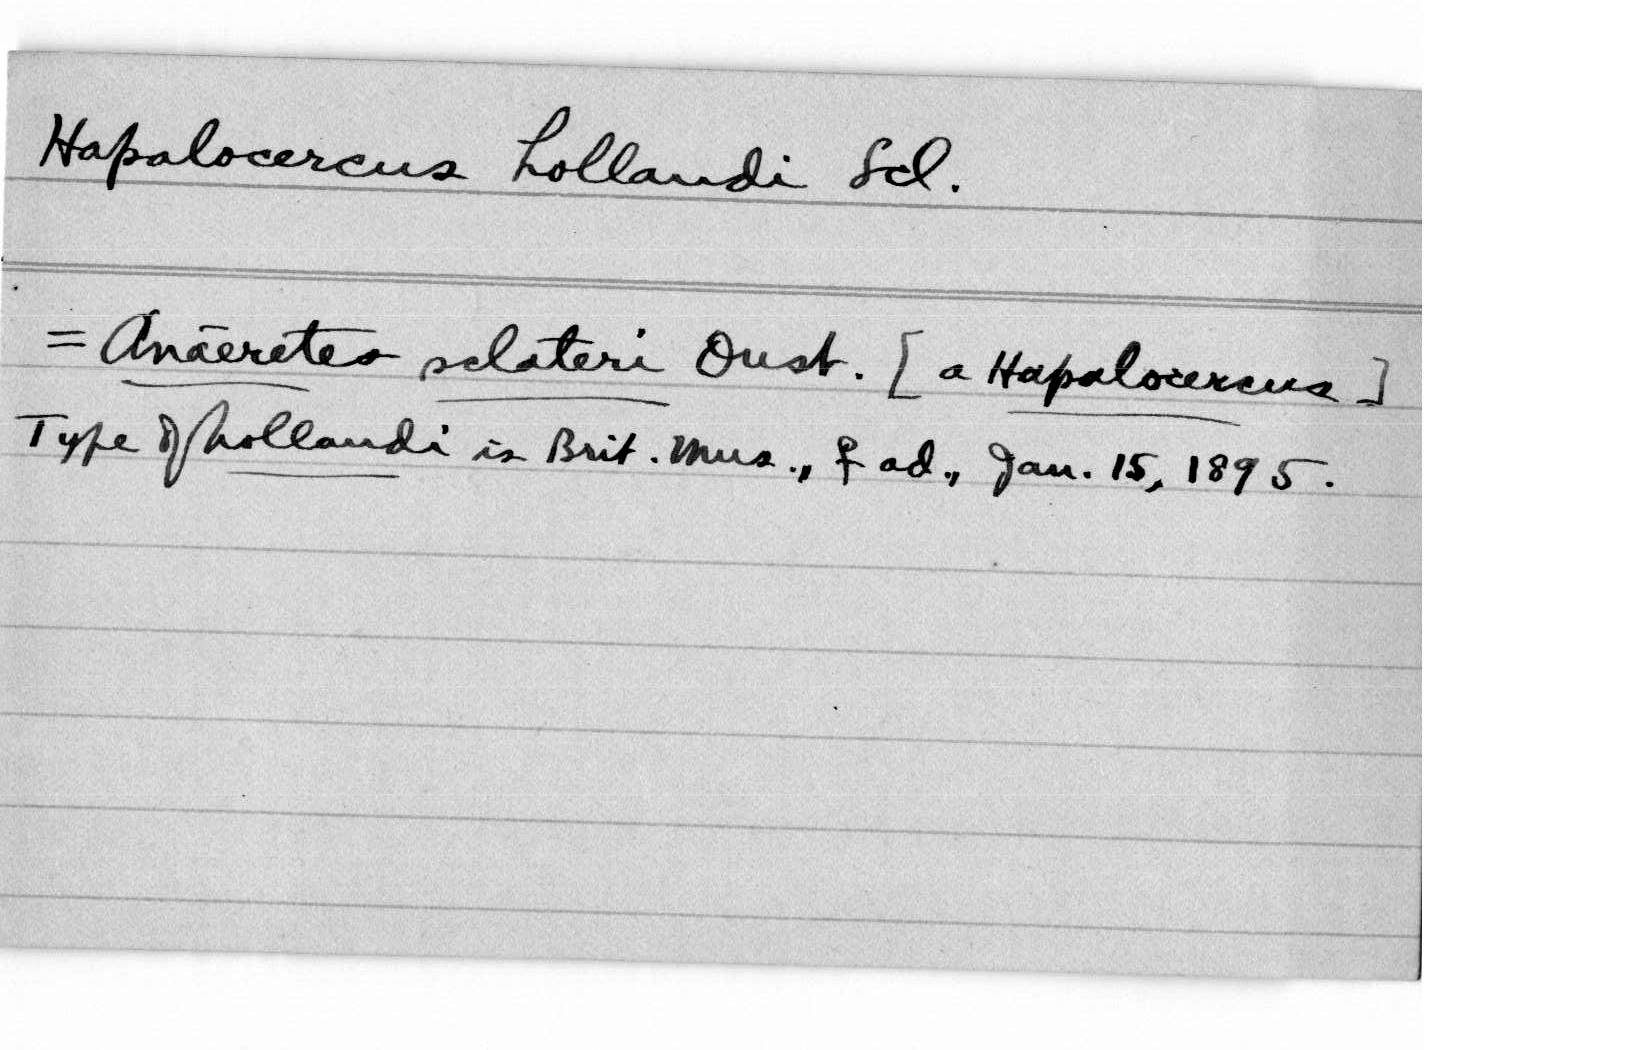 Hapalocercus hollandi Scl.
= Anāeretes sclateri Oust. [a Hapalocercus]
Type of hollandi is Brit. Mus., ♀ ad., Jan. 15, 1895.